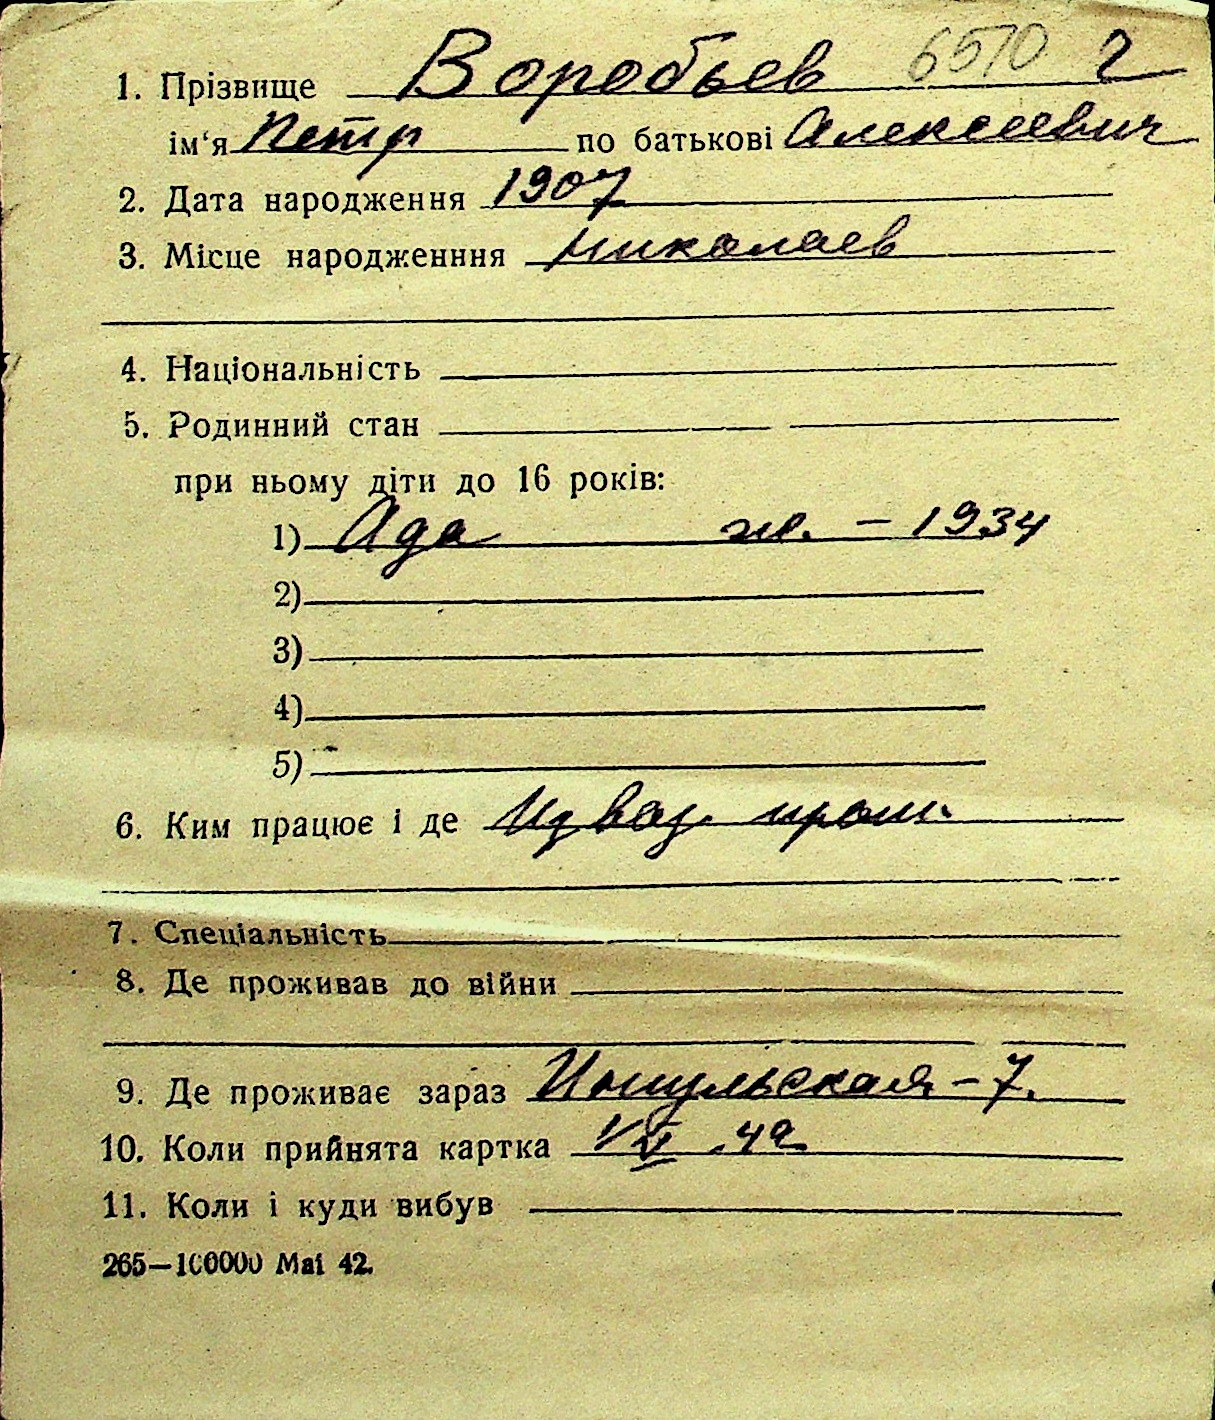 1. Прізвище Воробьев 6570 2
ім‘я Петр по батькові Алексеевич
2. Дата народження 1907
3. Місце народженння Николаев
4. Національність
5. Родинний стан
при ньому діти до 16 років:
1) Ада ж. – 1934
2)
3)
4)
5)
6. Ким працює і де
7. Спеціальність
8. Де проживав до війни
9. Де проживає зараз Ингульская – 7.
10. Коли прийнята картка 1/VI .42
11. Коли і куди вибув
265—100000 Mai 42.